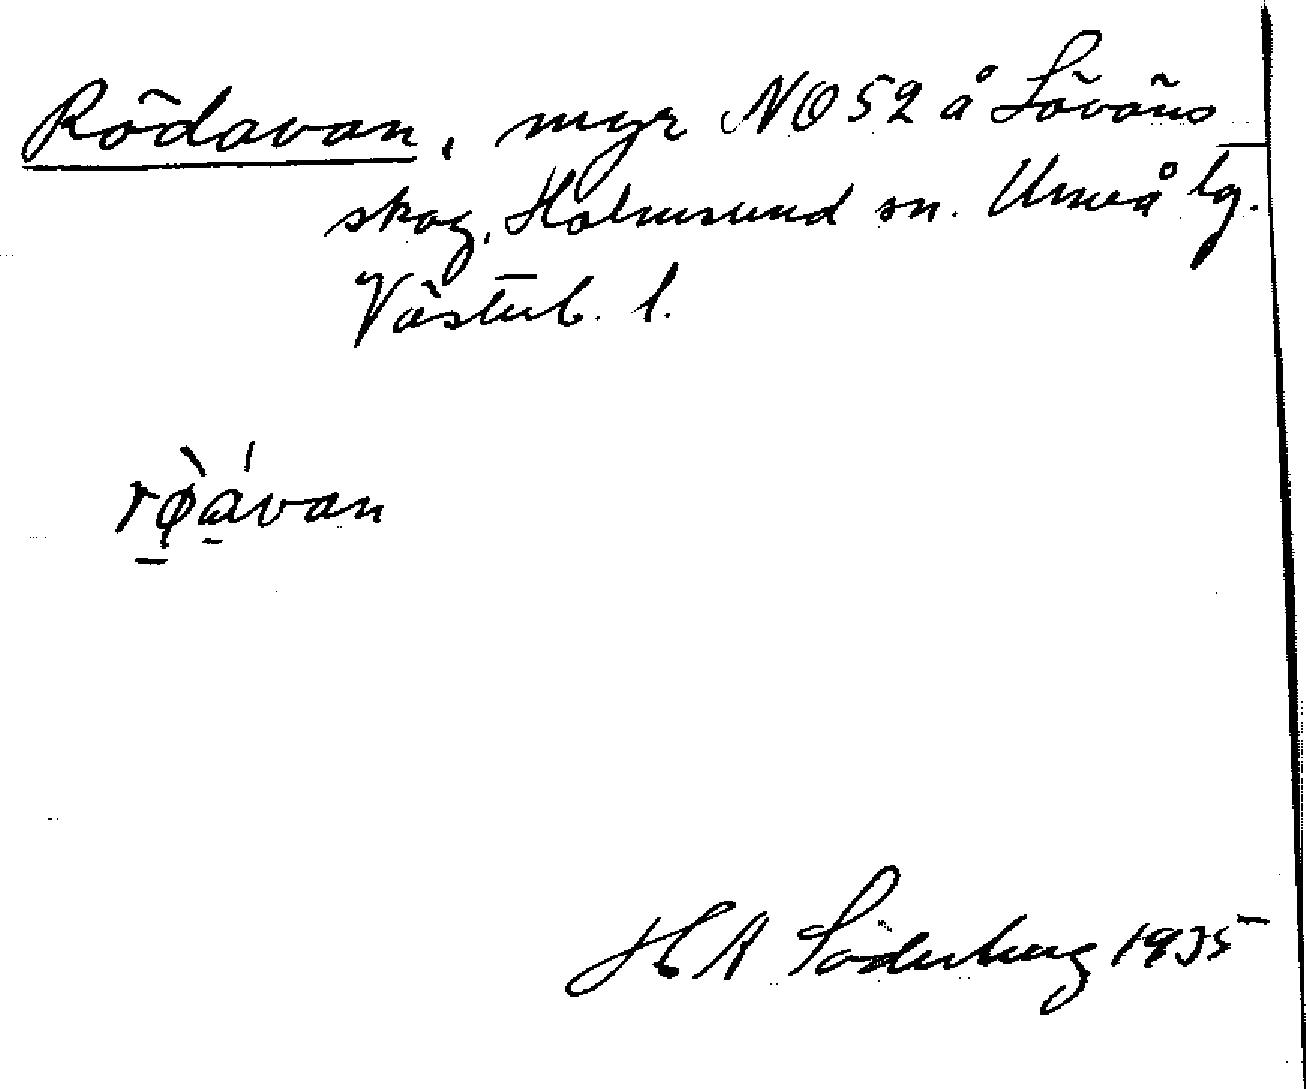 Rödavan, myr NO 52 å Lövöns
skog, Holmsund sn. Umeå lg.
Västerb. l.
rø̀ávan
H A Söderberg 1935